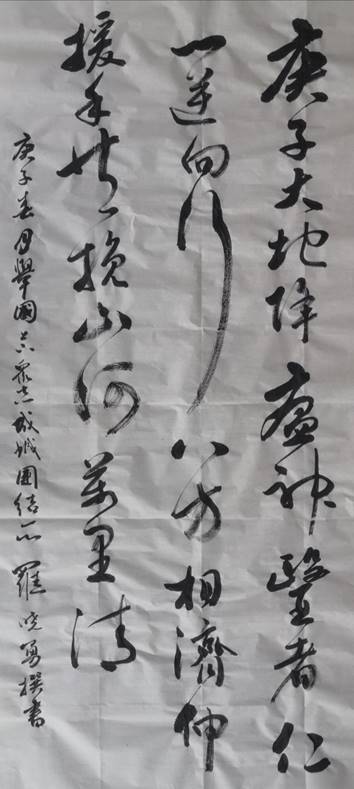 庚子大地降瘟神醫者仁
心逆向行八方相濟伸
援手共挽山河萬里清
庚子春月舉國上下眾志成城團結一心 羅曉勇撰書